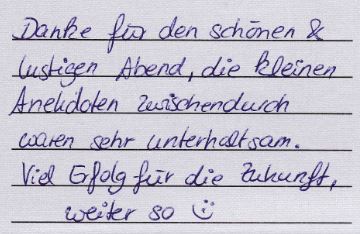 Danke für den schönen &
lustigen Abend, die kleinen
Anekdoten zwischendurch
waren sehr unterhaltsam.
Viel Erfolg für die Zukunft,
weiter so ☺